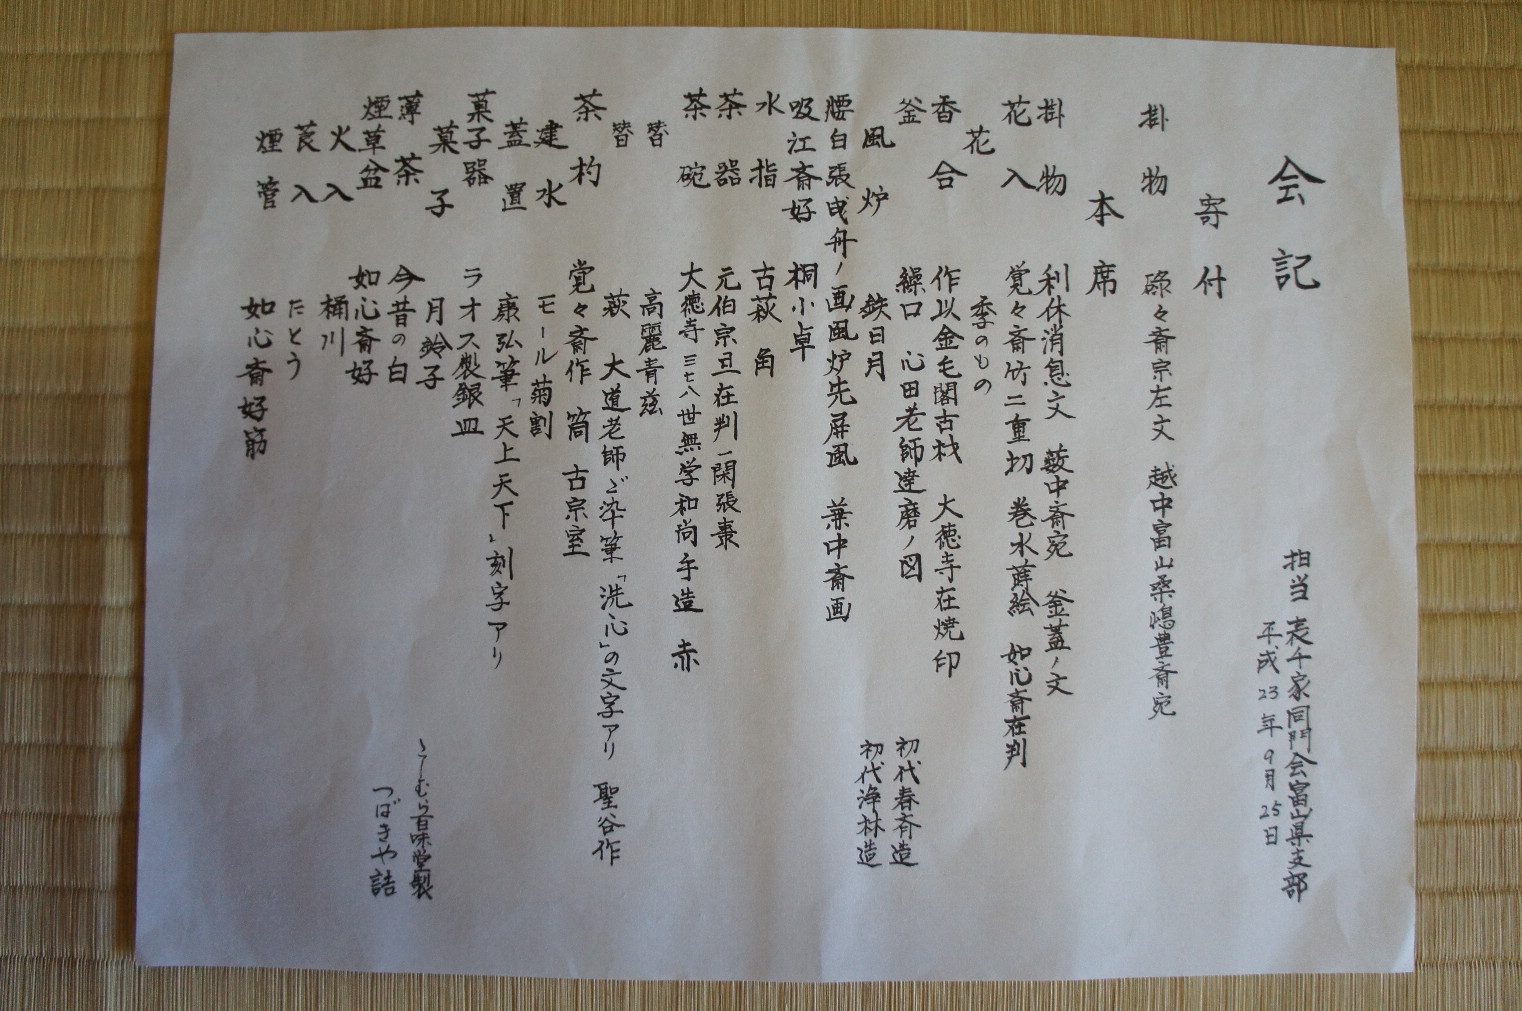 会記
担当 表千家同門会富山県支部
平成23年9月25日
寄付
掛物 碌々斎宗左文 越中富山桑嶋豊斎宛
本席
掛物 利休消息文 薮中斎宛 釜蓋ノ文
花入 覚々斎竹二重切 巻水蒔絵 如心斎在判
花 季のもの
香合 作以金毛閣古材 大徳寺在焼印
釜 繰口 心田老師達磨ノ図 初代春斉造
風炉 鉄日月 初代浄林造
腰白張曳舟ノ画風炉先屏風 葉中斎画
吸江斎好 桐小卓
水指 古萩 角
茶器 元伯宗旦在判一閑張棗
茶碗 大徳寺三七八世無学和尚手造 赤
替 高麗青茲
替 萩 大道老師ご染筆「洗心」の文字アリ 聖谷作
茶杓 覚々斎作 筒 古宗室
建水 モール菊割
蓋置 康弘筆「天上天下」刻字アリ
菓子器 ラオス製銀皿
菓子 月鈴子 さしむら百味堂製
薄茶 今昔の白 つばきや詰
煙草盆 如心斎好
火入 桶川
莨入 たとう
煙管 如心斎好筋